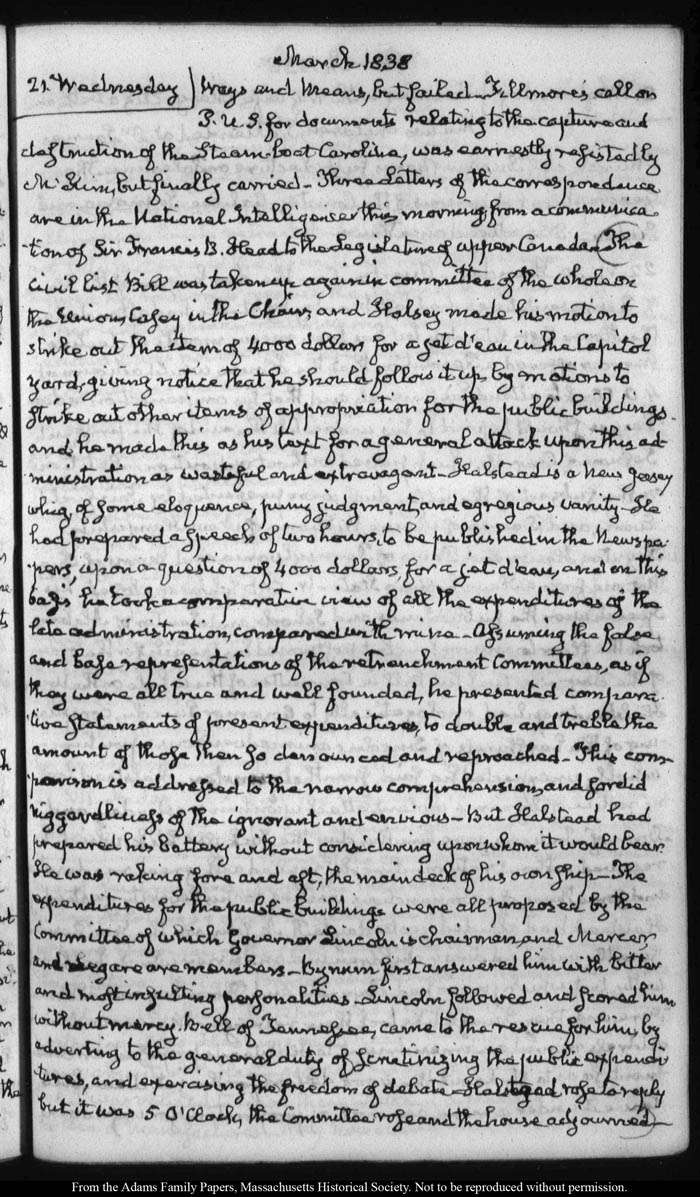 March 1838
21. Wednesday) Ways and Means, but failed_ Fillmore's call on
P. U. S. for documents relating to the capture and
destruction of the Steam-boat Carolina, was earnestly resisted by
McKim, but finally carried_ Three Letters of the correspondence
are in the National Intelligencer this morning, from a communica-
tion of Sir Francis B. Head to the Legislature of upper Canada_ The
civil list Bill was taken up again in committee of the whole on
the Union, Casey in the Chair; and Halsey made his motion to
strike out the item of 4000 dollars for a jet d'eau in the Capitol
yard, giving notice that he should follow it up by motions to
strike out other items of appropriation for the public buildings.
and he made this as his text for a general attack upon this ad-
ministration as wasteful and extravagant_ Halstead is a New Jersey
whig, of some eloquence, puny judgment, and egregious vanity_ He
had prepared a speech of two hours, to be published in the Newspa-
pers, upon a question of 4000 dollars, for a jet d'eau, and on this
basis he took a comparative view of all the expenditures of the
late administration, compared with mine_ Assuming the false
and base representations of the retrenchment Committees, as if
they were all true and well founded, he presented compara-
tive statements of present expenditures, to double and treble the
amount of those then so denounced and reproached_ This com-
parison is addressed to the narrow comprehension, and sordid
niggardliness of the ignorant and envious_ But Halstead had
prepared his battery without considering upon whom it would bear.
He was raking fore and aft, the main deck of his own ship_ The
expenditures for the public buildings were all proposed by the
Committee of which Governor Lincoln is chairman, and Mercer,
and Legare are members_ Bynum first answered him with bitter
and most insulting personalities_ Lincoln followed and scored him
without mercy. Bell of Tennessee, came to the rescue for him, by
adverting to the general duty of scrutinizing the public expendi-
tures, and exercising the freedom of debate_ Halstead rose to reply
but it was 5 O'Clock, the Committee rose and the house adjourned_
From the Adams Family Papers, Massachusetts Historical Society. Not to be reproduced without permission.